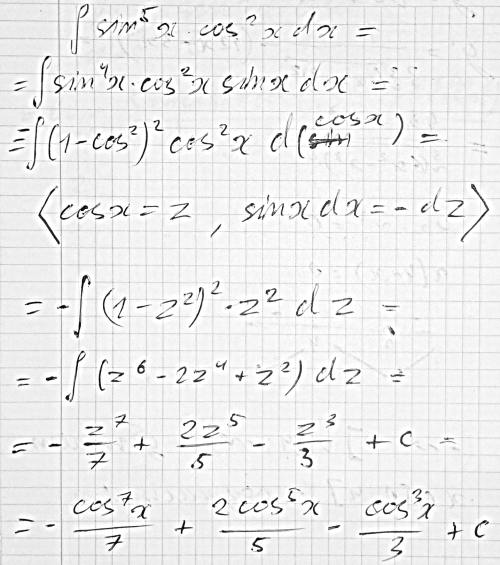 ∫ sin⁵x · cos²x dx =
= ∫ sin⁴x · cos²x sinx dx =
= ∫ (1 - cos²)² cos²x d(cosx) =
⟨cosx = z , sinx dx = - dz⟩
= - ∫ (1 - z²)² · z² dz =
= - ∫ (z⁶ - 2z⁴ + z²) dz =
= - z⁷/7 + 2z⁵/5 - z³/3 + c =
= - cos⁷x/7 + 2cos⁵x/5 - cos³x/3 + c